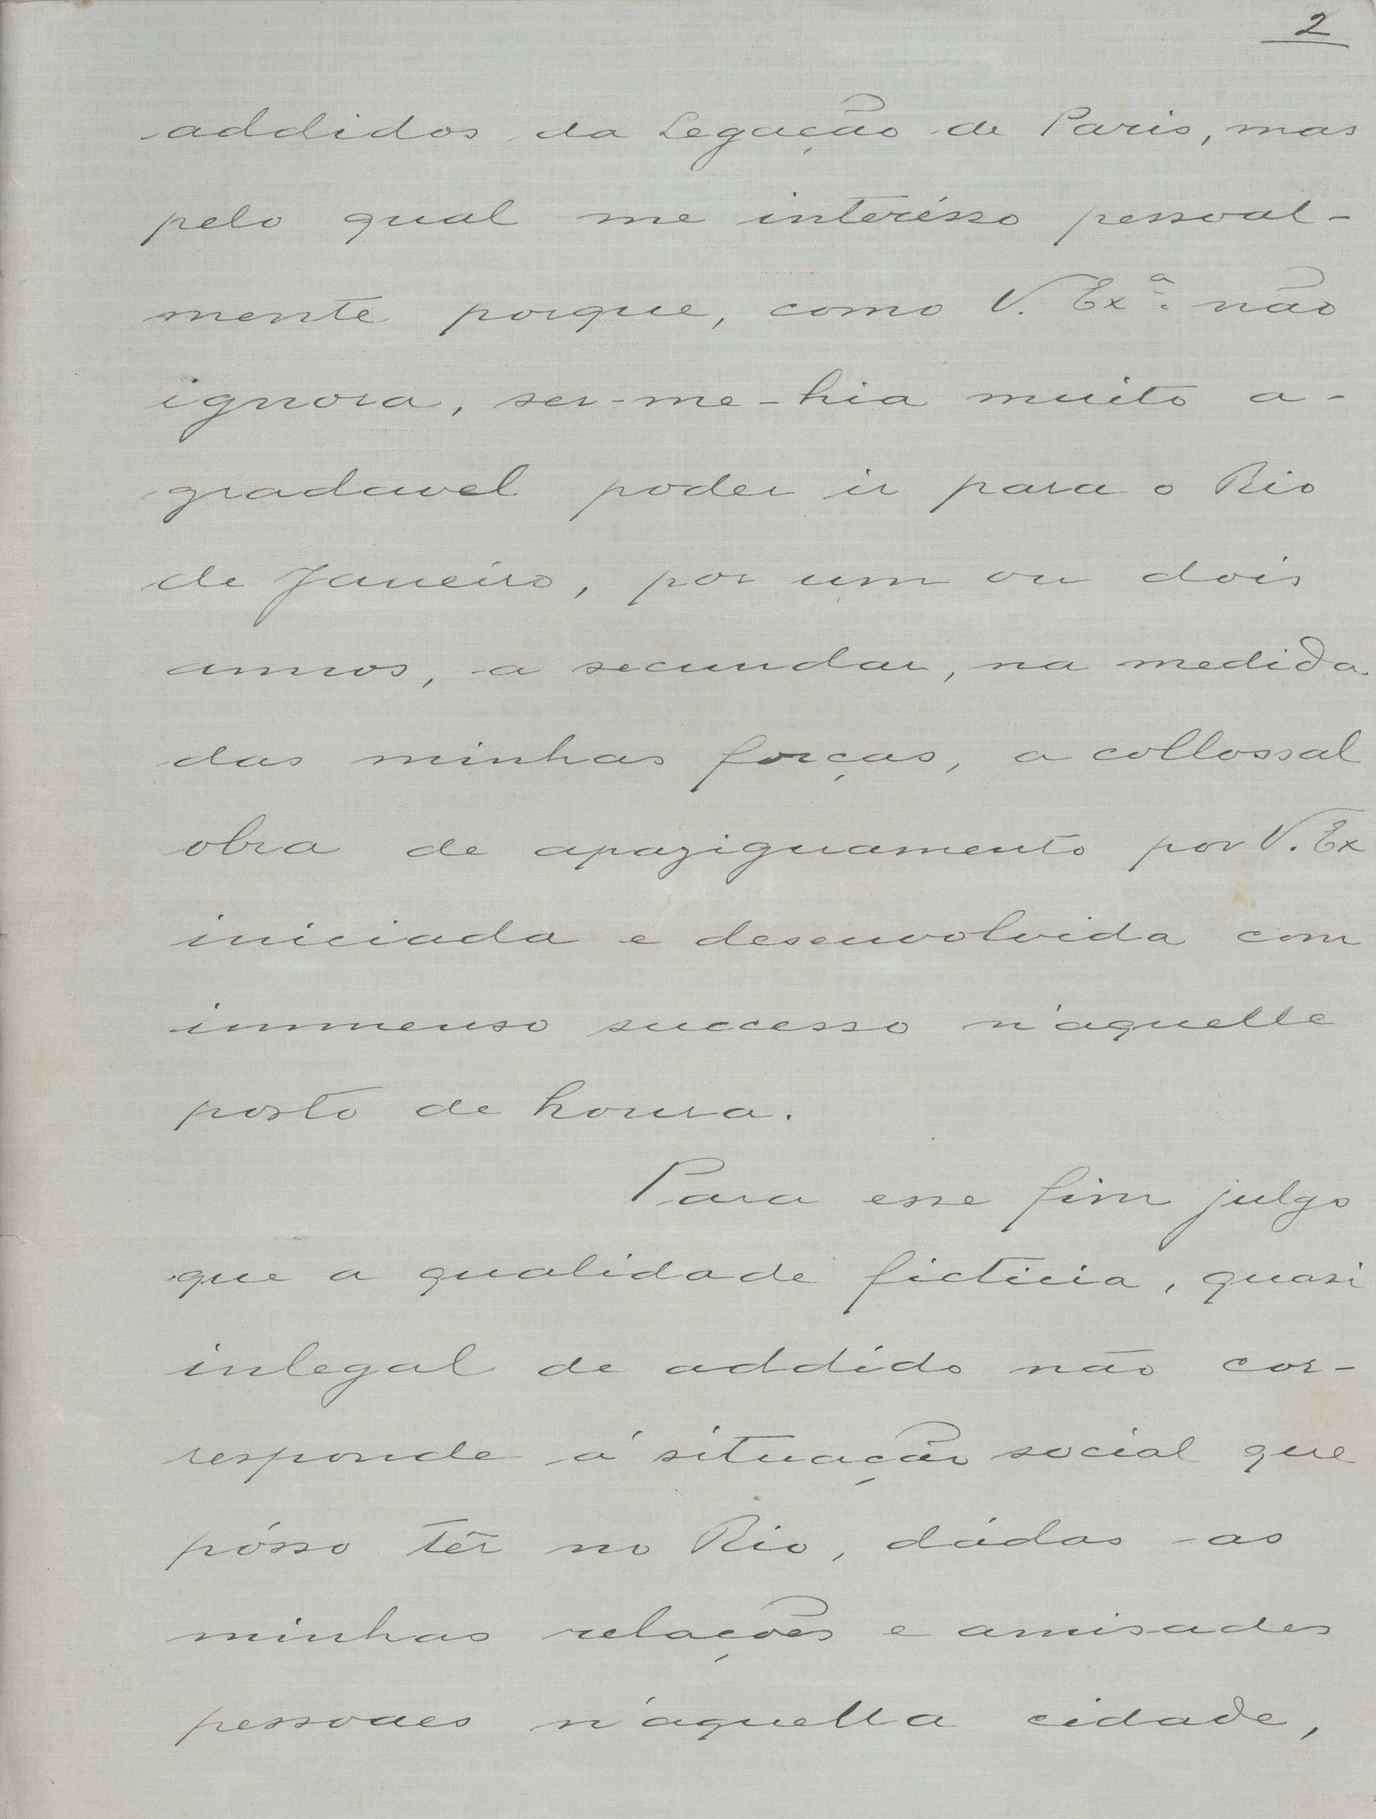 2
addidos da Legação de Paris, mas
pelo qual me interésso pessoal-
mente porque, como V. Exª. não
ignora, ser-me-hia muito a-
gradavel poder ir para o Rio
de Janeiro, por um ou dois
annos, a secundar, na medida
das minhas forças, a collossal
obra de apaziguamento por V. Ex
iniciada e desenvolvida com
immenso successo n'aquelle
posto de honra.
Para esse fim julgo
que a qualidade ficticia, quasi
inlegal de addido não cor-
responde á situação social que
pósso têr no Rio, dádas as
minhas relações e amisades
pessoaes n'aquella cidade,